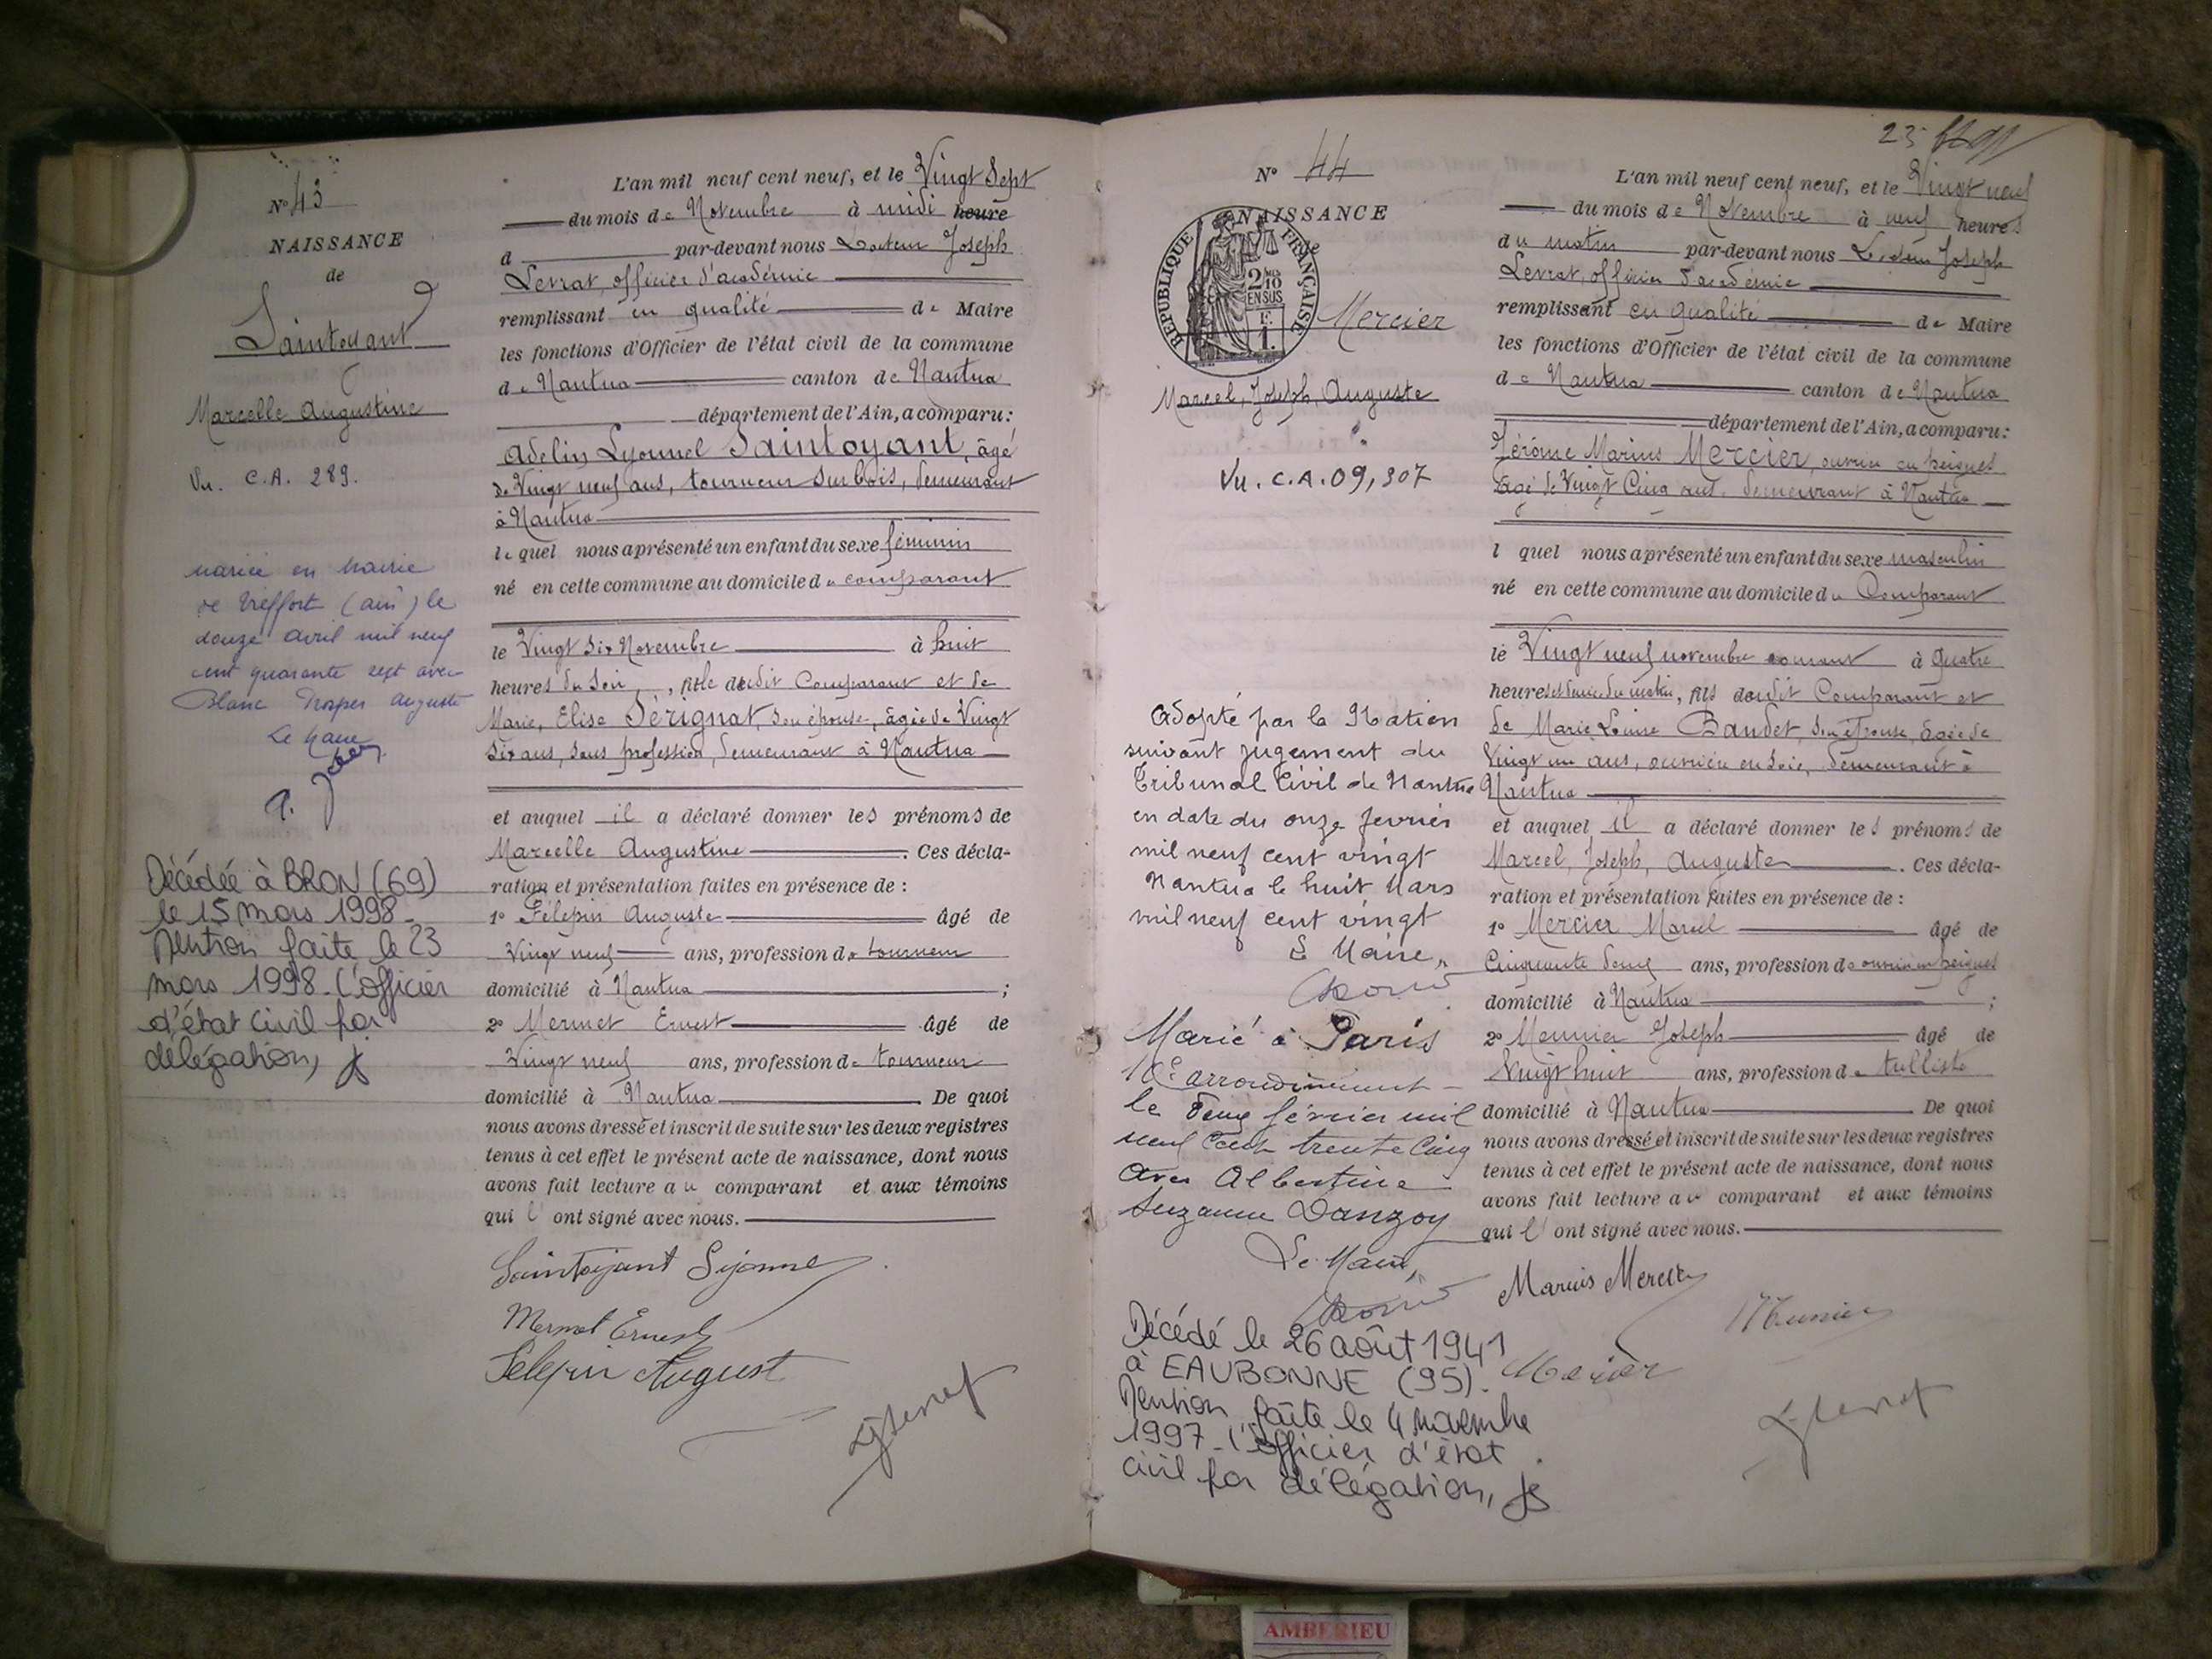 N° 43
NAISSANCE
de
Saintoyant
Marcelle Augustine
Vu. C.A. 289.
mariée en mairie
de Treffort (ain) le
douze avril mil neuf
cent quarante sept avec
Blanc Prosper Auguste
Le Maire
Décédée à BRON (69)
le 15 mars 1998.
Mention faite le 23
mars 1998. L'officier
d'état civil par
délégation,
L'an mil neuf cent neuf, et le Vingt Sept
du mois de Novembre à midi heure
d par-devant nous Docteur Joseph
Levrat, officier d'académie
remplissant en qualité de Maire
les fonctions d'Officier de l'état civil de la commune
de Nantua canton de Nantua
département de l'Ain, a comparu:
Adelin Lyonnel Saintoyant, âgé
de Vingt neuf ans, tourneur sur bois, demeurant
à Nantua
le quel nous a présenté un enfant du sexe féminin
né en cette commune au domicile du comparant
le Vingt six Novembre à huit
heures du soir, fille dudit Comparant et de
Marie, Elise Sérignat, son épouse, âgée de Vingt
six ans, sans profession, demeurant à Nantua
et auquel il a déclaré donner les prénoms de
Marcelle Augustine. Ces décla-
ration et présentation faites en présence de :
1° Félepin Auguste âgé de
Vingt neuf ans, profession de tourneur
domicilié à Nantua ;
2° Mermet Ernest âgé de
Vingt neuf ans, profession de tourneur
domicilié à Nantua. De quoi
nous avons dressé et inscrit de suite sur les deux registres
tenus à cet effet le présent acte de naissance, dont nous
avons fait lecture au comparant et aux témoins
qui l'ont signé avec nous.
Saintoyant
Mermet Ernest
Felepin August
23
N° 44
NAISSANCE
RÉPUBLIQUE FRANÇAISE
2/10
EN SUS
F.
1.
de
Mercier
Marcel, Joseph, Auguste
Vu. C.A. 09, 307
Adopté par la Nation
suivant jugement du
Tribunal Civil de Nantua
en date du onze fevrier
mil neuf cent vingt
Nantua le huit Mars
mil neuf cent vingt
Le Maire,
Marié à Paris
10e arrondissement
le deux février mil
neuf cent trente cinq
avec Albertine
Suzanne Danzoy
Le Maire,
Décédé le 26 août 1941
à EAUBONNE (95).
Mention faite le 4 novembre
1997. L'officier d'état
civil par délégation,
L'an mil neuf cent neuf, et le Vingt neuf
du mois de Novembre à neuf heures
du matin par-devant nous Docteur Joseph
Levrat, officier d'académie
remplissant en qualité de Maire
les fonctions d'Officier de l'état civil de la commune
de Nantua canton de Nantua
département de l'Ain, a comparu:
Jérôme Marius Mercier, ouvrier en peignes
âgé de Vingt Cinq ans, demeurant à Nantua
l quel nous a présenté un enfant du sexe masculin
né en cette commune au domicile du Comparant
le Vingt neuf novembre courant à quatre
heures et demie du matin, fils dudit Comparant et
de Marie Louise Baudet, son épouse, âgée de
Vingt un ans, ouvrière en soie, demeurant à
Nantua
et auquel il a déclaré donner les prénoms de
Marcel, Joseph, Auguste. Ces décla-
ration et présentation faites en présence de :
1° Mercier Marcel âgé de
Cinquante deux ans, profession de ouvrier en peignes
domicilié à Nantua ;
2° Meunier Joseph âgé de
Vingt huit ans, profession de tulliste
domicilié à Nantua. De quoi
nous avons dressé et inscrit de suite sur les deux registres
tenus à cet effet le présent acte de naissance, dont nous
avons fait lecture au comparant et aux témoins
qui l'ont signé avec nous.
Marius Mercier
Meunier
Mercier
AMBERIEU